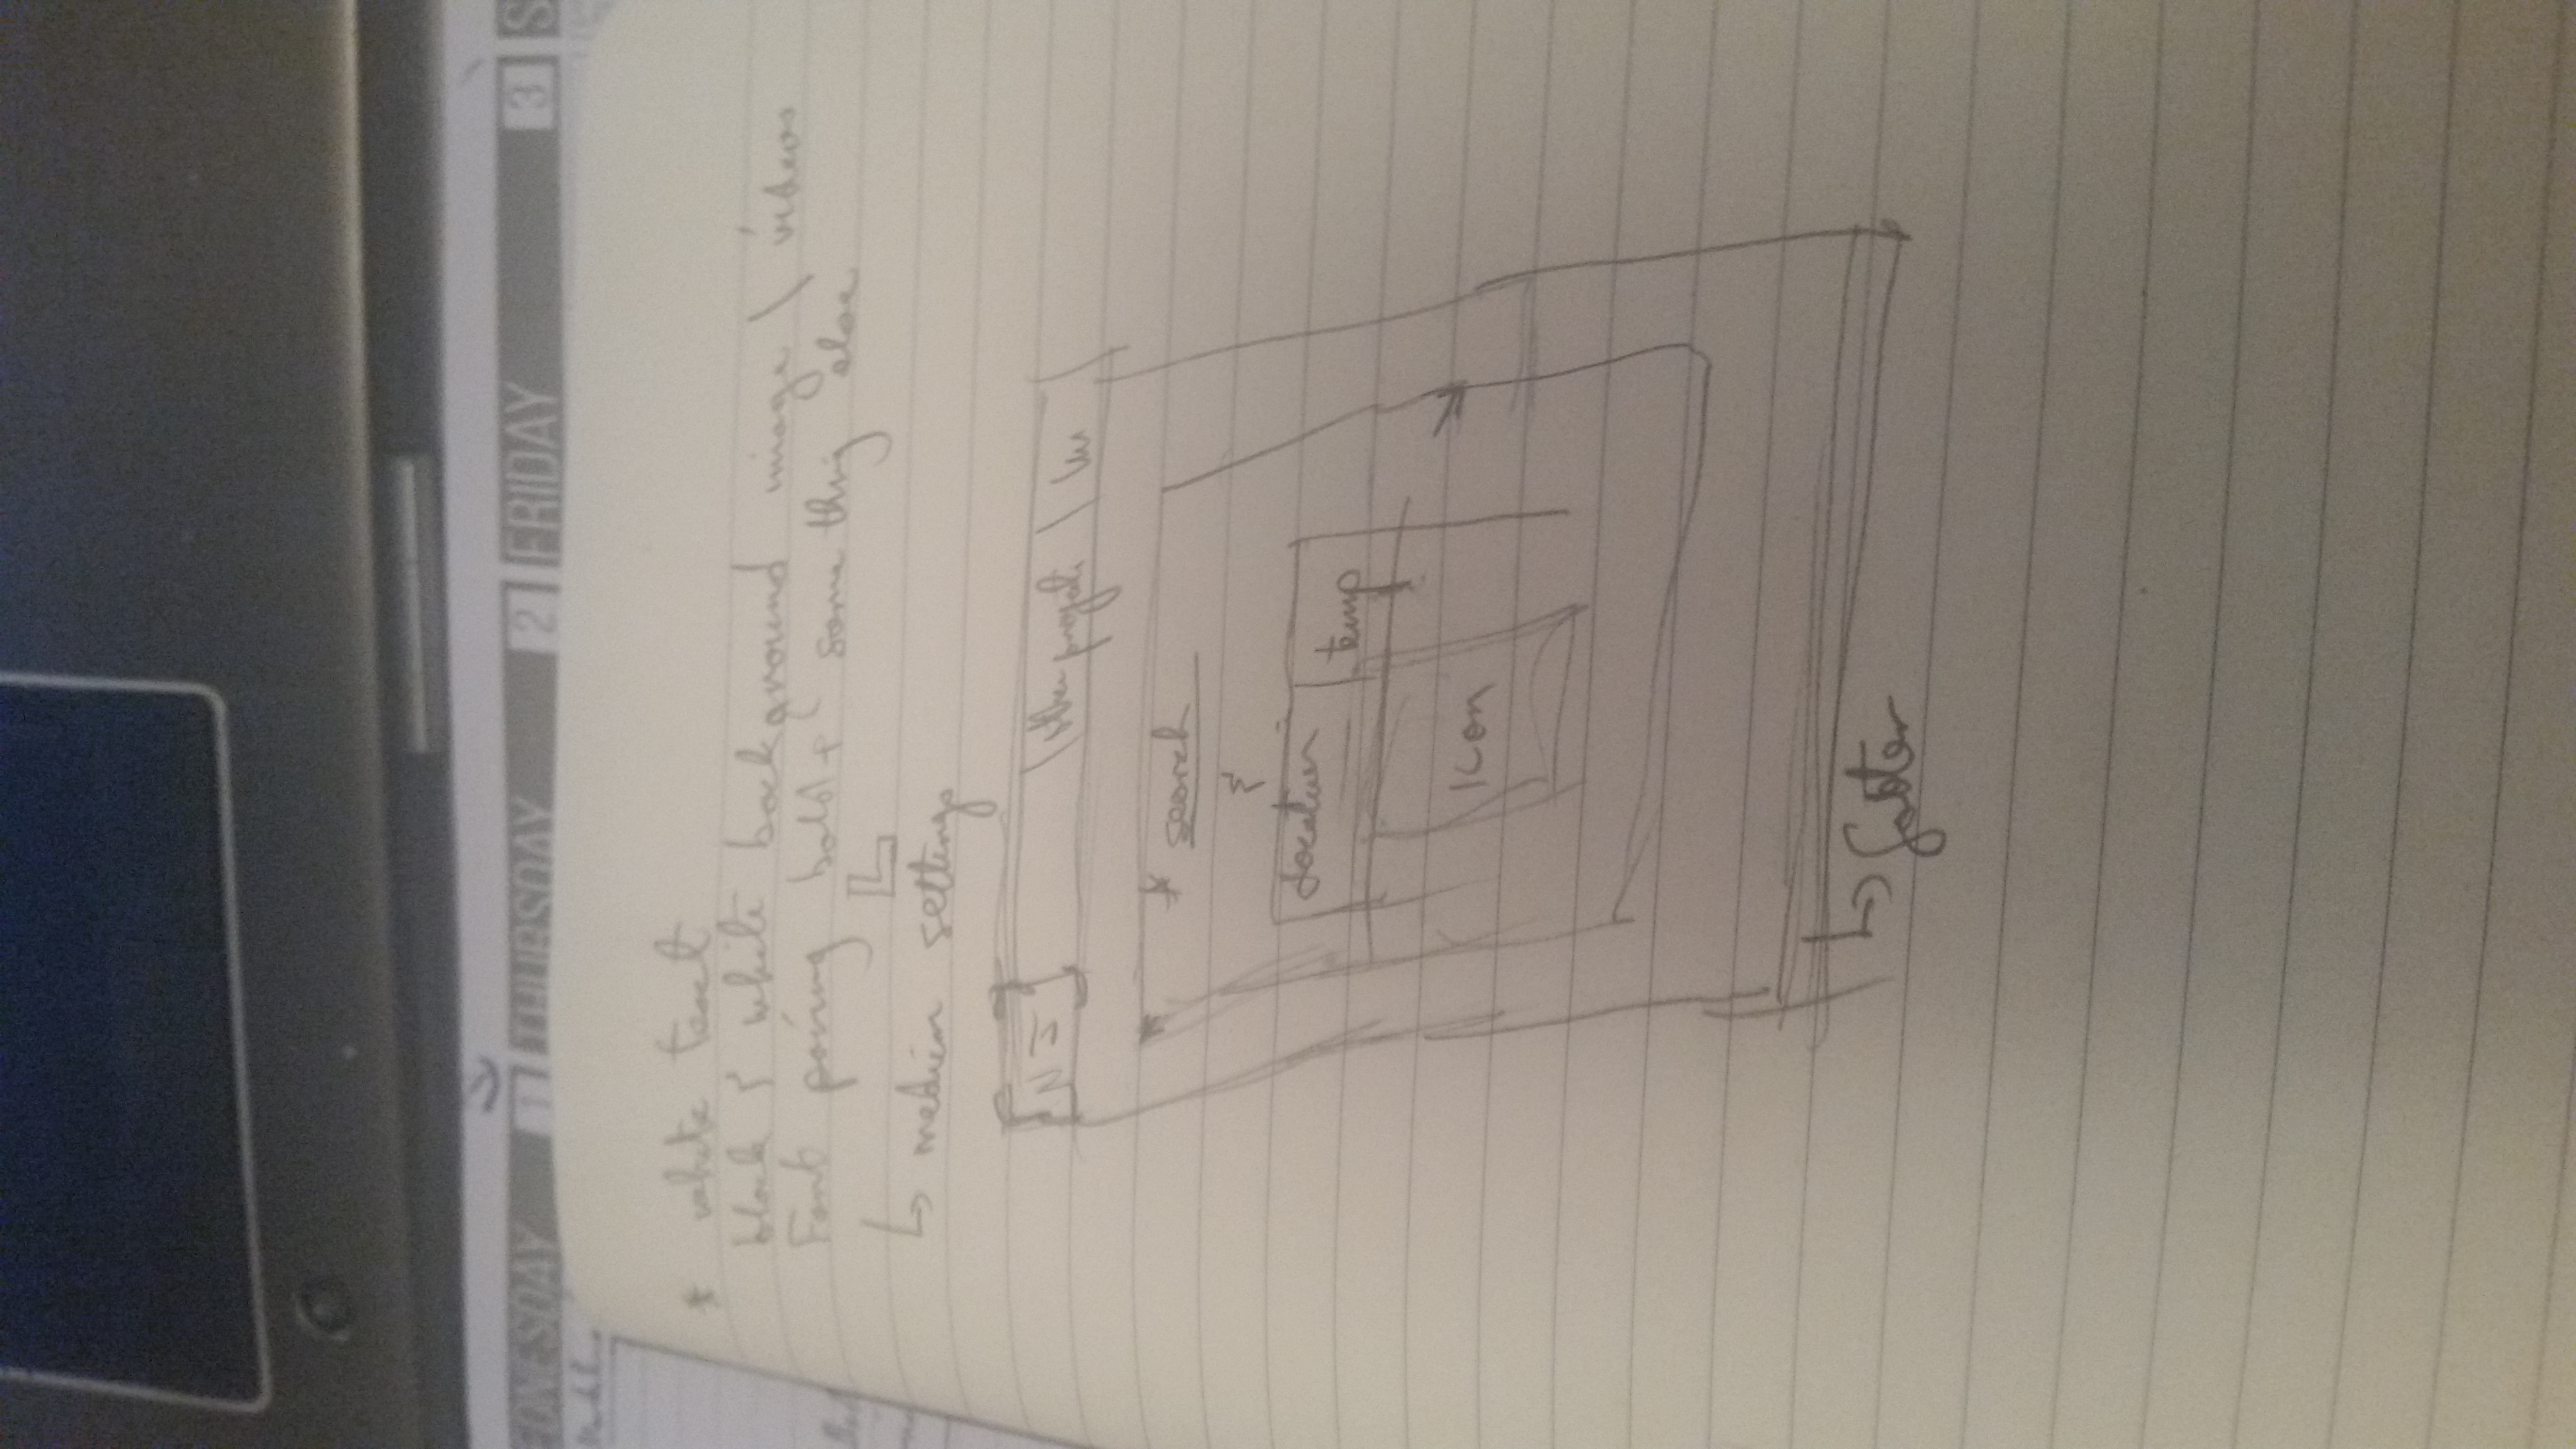 WEDNESDAY 1 THURSDAY 2 FRIDAY 3 S
* white text
black & white background image \ videos
Font pairing bold + something else
medium settings
N
\ other projects \
* search
&
Location
temp
Icon
footer